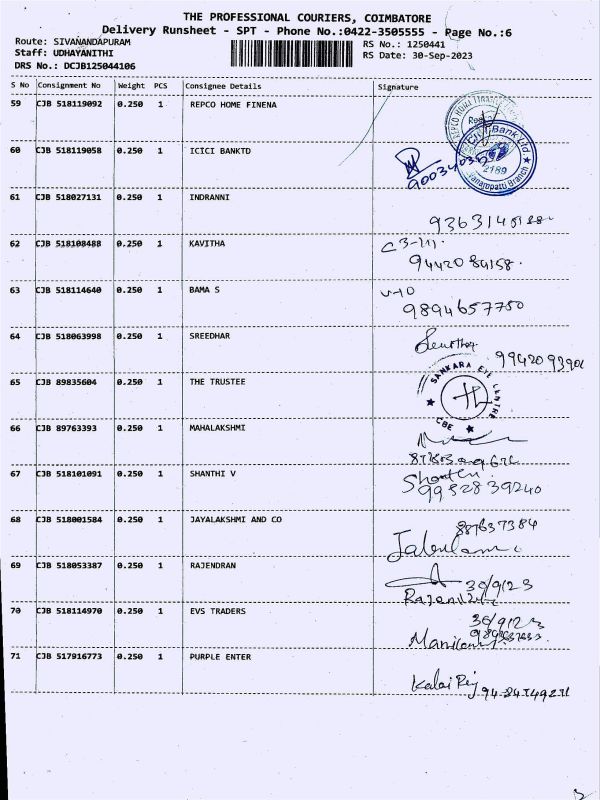 THE PROFESSIONAL COURIERS, COIMBATORE
Delivery Runsheet - SPT - Phone No.:0422-3505555 - Page No.:6
Route: SIVANANDAPURAM RS No.: 1250441
Staff: UDHAYANITHI RS Date: 30-Sep-2023
DRS No.: DCJB125044106
S No Consignment No Weight PCS Consignee Details Signature
59 CJB 518119092 0.250 1 REPCO HOME FINENA
60 CJB 518119058 0.250 1 ICICI BANKTD
Bank Ltd
2189
61 CJB 518027131 0.250 1 INDRANNI
62 CJB 518108488 0.250 1 KAVITHA
9442084158.
63 CJB 518114640 0.250 1 BAMA S
9894657750
64 CJB 518063998 0.250 1 SREEDHAR
65 CJB 89835604 0.250 1 THE TRUSTEE
SANKARA EYE CENTRE
CBE
66 CJB 89763393 0.250 1 MAHALAKSHMI
67 CJB 518101091 0.250 1 SHANTHI V
9952839240
68 CJB 518001584 0.250 1 JAYALAKSHMI AND CO
69 CJB 518053387 0.250 1 RAJENDRAN
30/9/23
70 CJB 518114970 0.250 1 EVS TRADERS
30/9/23
71 CJB 517916773 0.250 1 PURPLE ENTER